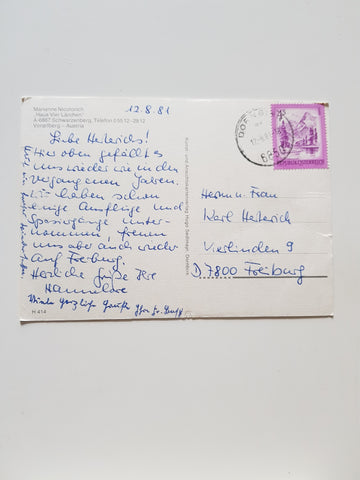 Marianne Nicolovich
"Haus Vier Ländchen"
A-6867 Schwarzenberg, Telefon 0 55 12 - 29 12
Vorarlberg - Austria
12.8.81
Liebe Heiterichs!
Hier oben gefällt es
uns wieder wie in den
vergangenen Jahren.
Wir haben schon
einige Ausflüge und
Spaziergänge unter-
nommen, freuen
uns aber auch wieder
auf Freiburg.
Herzliche Grüße Ihre
Hannelore
H 414
Kunst- und Ansichtskartenverlag
DO
6850
REPUBLIK ÖSTERREICH
Herrn u. Frau
Karl Heiterich
Vierlinden 9
D 7800 Freiburg